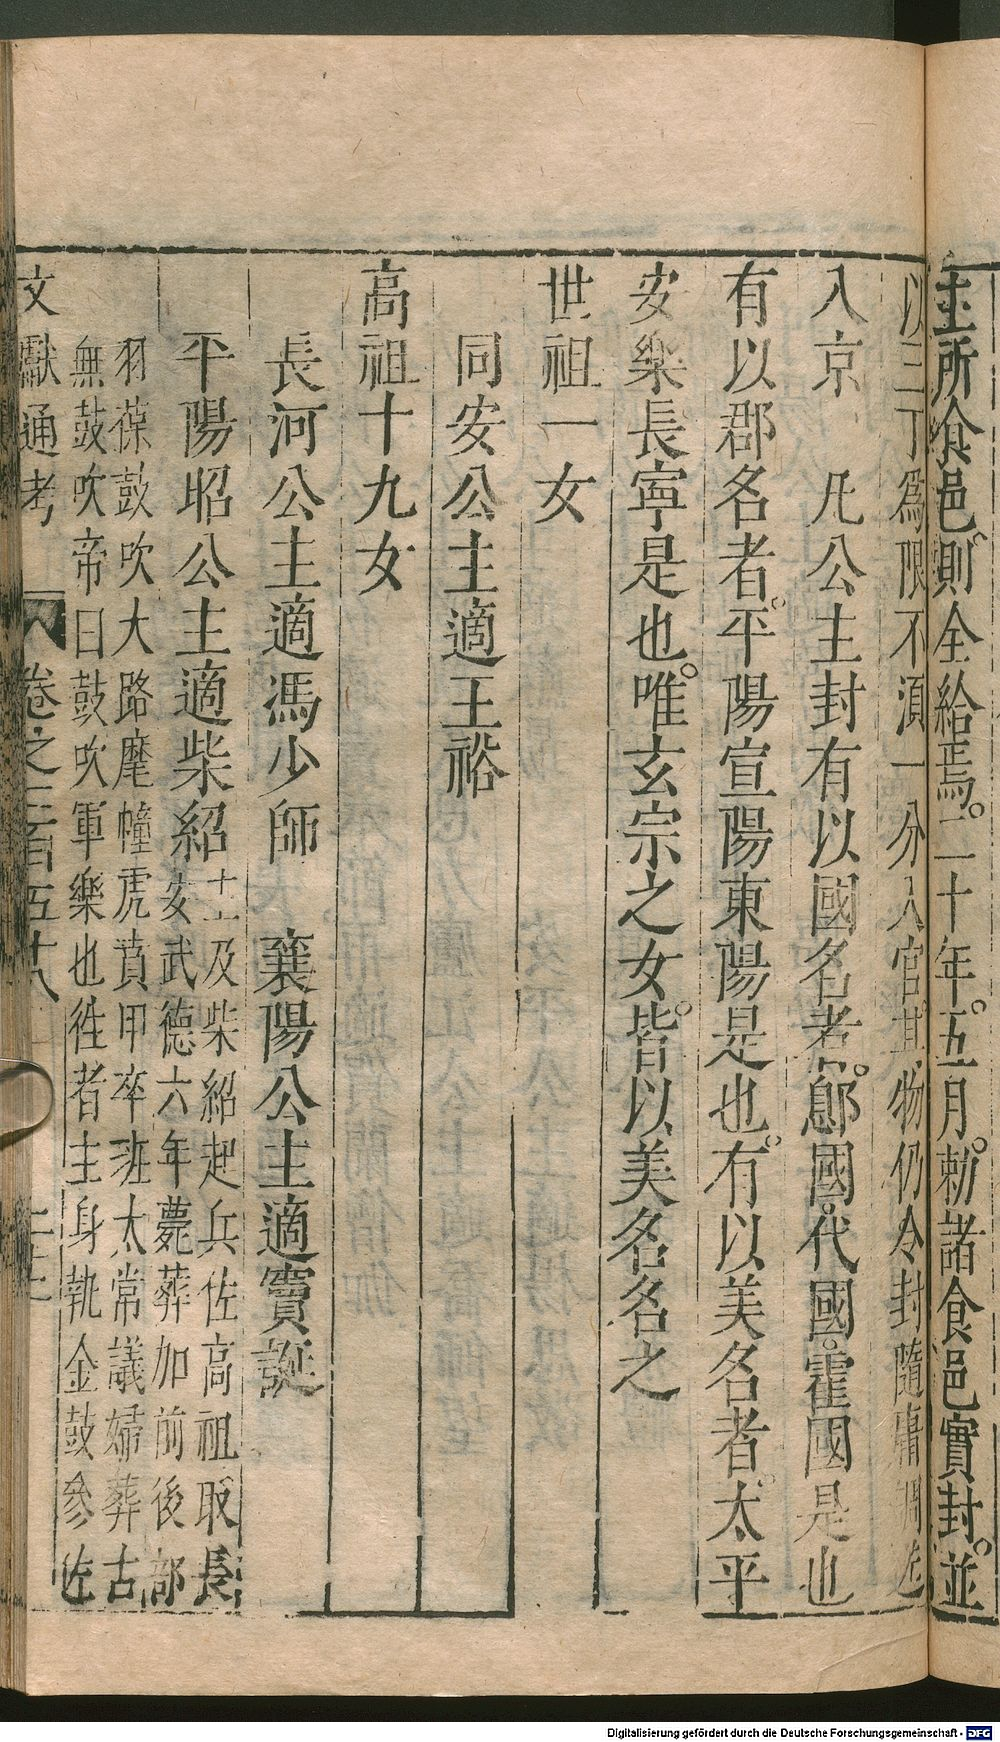 主所食邑則全給焉二十年五月勅諸食邑實封並
以三丁爲限不湏一分入官其物仍令封隨庸調送
入京　凡公主封有以國名者鄎國代國霍國是也
有以郡名者平陽宣陽東陽是也有以美名者太平
安樂長寧是也唯玄宗之女皆以美名名之
世祖一女
同安公主適王裕
高祖十九女
長河公主適馮少師　襄陽公主適竇誕
平陽昭公主適柴紹
及柴紹起兵佐高祖取長
安武德六年薨葬加前後部
羽葆鼓吹大路麾幢虎賁甲卒班太常議婦葬古
無鼓吹帝曰鼓吹軍樂也徃者主身執金鼓參佐
文獻通考　卷之二百五十八
Digitalisierung gefördert durch die Deutsche Forschungsgemeinschaft - DFG